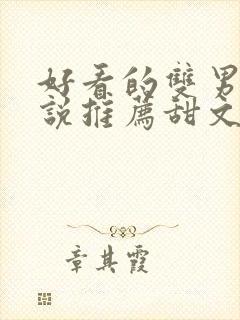 好看的雙男
說推薦甜文
章其霞